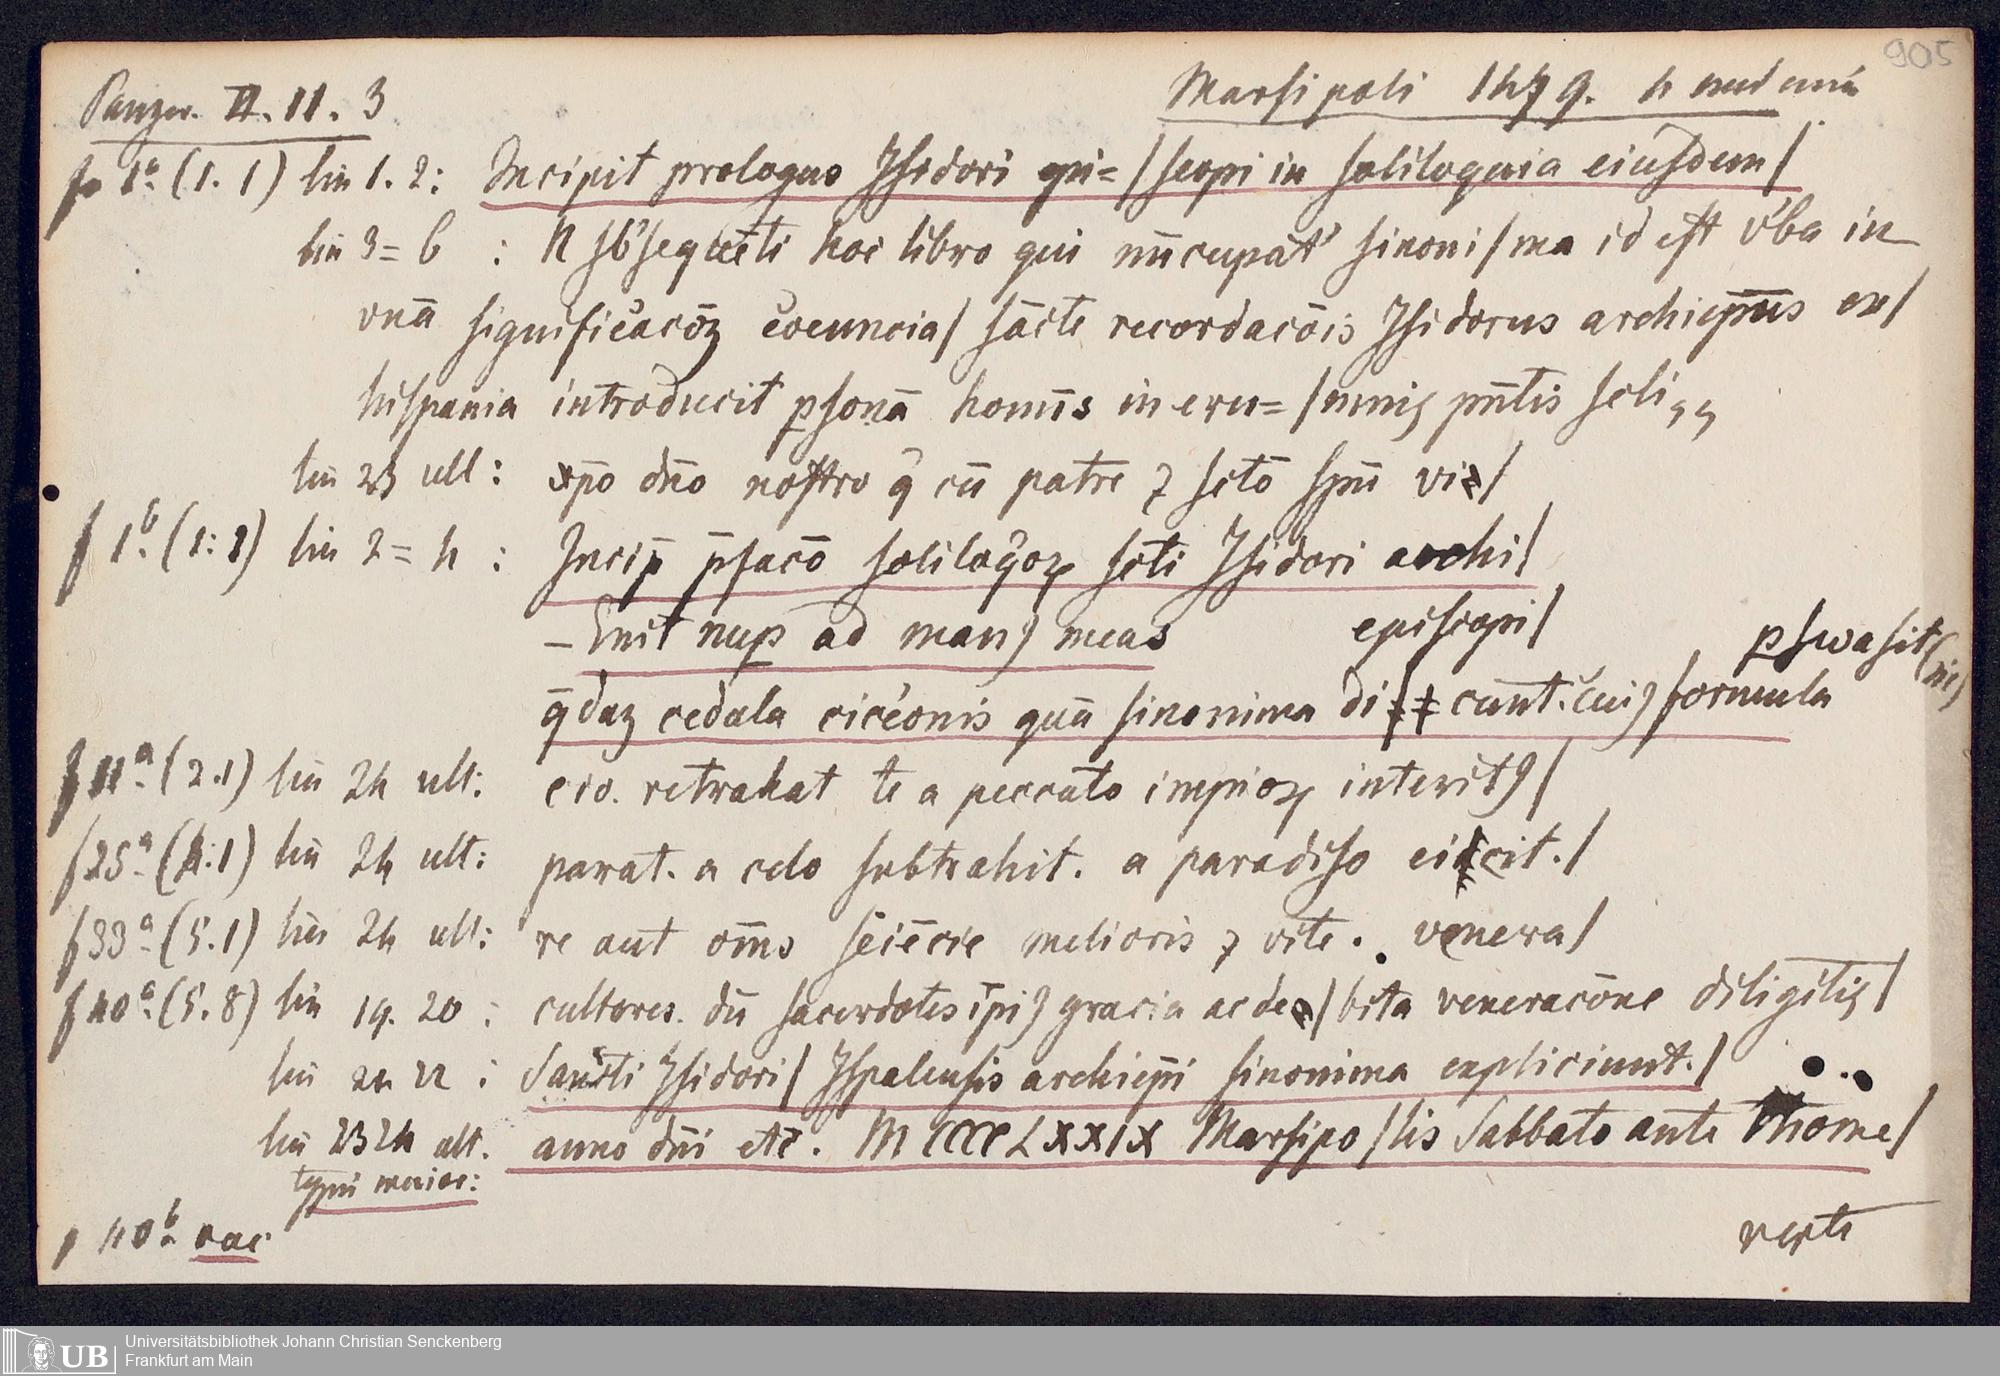 905
Panzer. II. 11. 3 Marsipoli 1479. 4 
f 1a. (1. 1) lin 1. 2: Incipit prologus Isidori epi=/scopi in soliloquia eiusdem/
lin 3=6 : N sb'sequēti hoc libro qui nūcupat' sinoni/ma id est v'ba in
vnā significacōꝫ coeuncia/ sācte recordacōis Isidorus archiepūs ex/
hispania introducit ꝑsonā homīs in eru=/mnis pn̄tis seli,,
lin 23 ult: xp̄o dn̄o nostro q̄ cū patre ⁊ sctō spū vi/
f 1b. (1:1) lin 2=4 : Incip̄ p̄facō soliloq̊oꝝ scti Isidori archi/
– Enit nuꝑ ad manꝰ meas episcopi/
q̄daꝫ cedula cic̄eonis quā sinonima di/cūnt. cuiꝰ formula ꝑswasit (m)
f 11a. (2.1) lin 24 ult: cio. retrahat te a peccato impioꝝ interitꝰ/
f 25a. (4:1) lin 24 ult: parat. a celo subtrahit. a paradiso eicit./
f 33a. (5.1) lin 24 ult: re aut om̄s sciēcie melioris ⁊ vite. venera/
f 40a. (5. 8) lin 19. 20 : cultores. dū sacerdotes ipiꝰ gracia ac de/bita veneracōne diligitis/
lin 21 22 : Sancti Isidori/ Ispalensis archiepi sinonima expliciunt./
lin 23 24 ult. anno dn̄i etc̄. MCCCCLXXIX Marsipo/lis Sabbato ante Thome/
typi maior:
f 40b. vac.
verte
Universitätsbibliothek Johann Christian Senckenberg
UB Frankfurt am Main